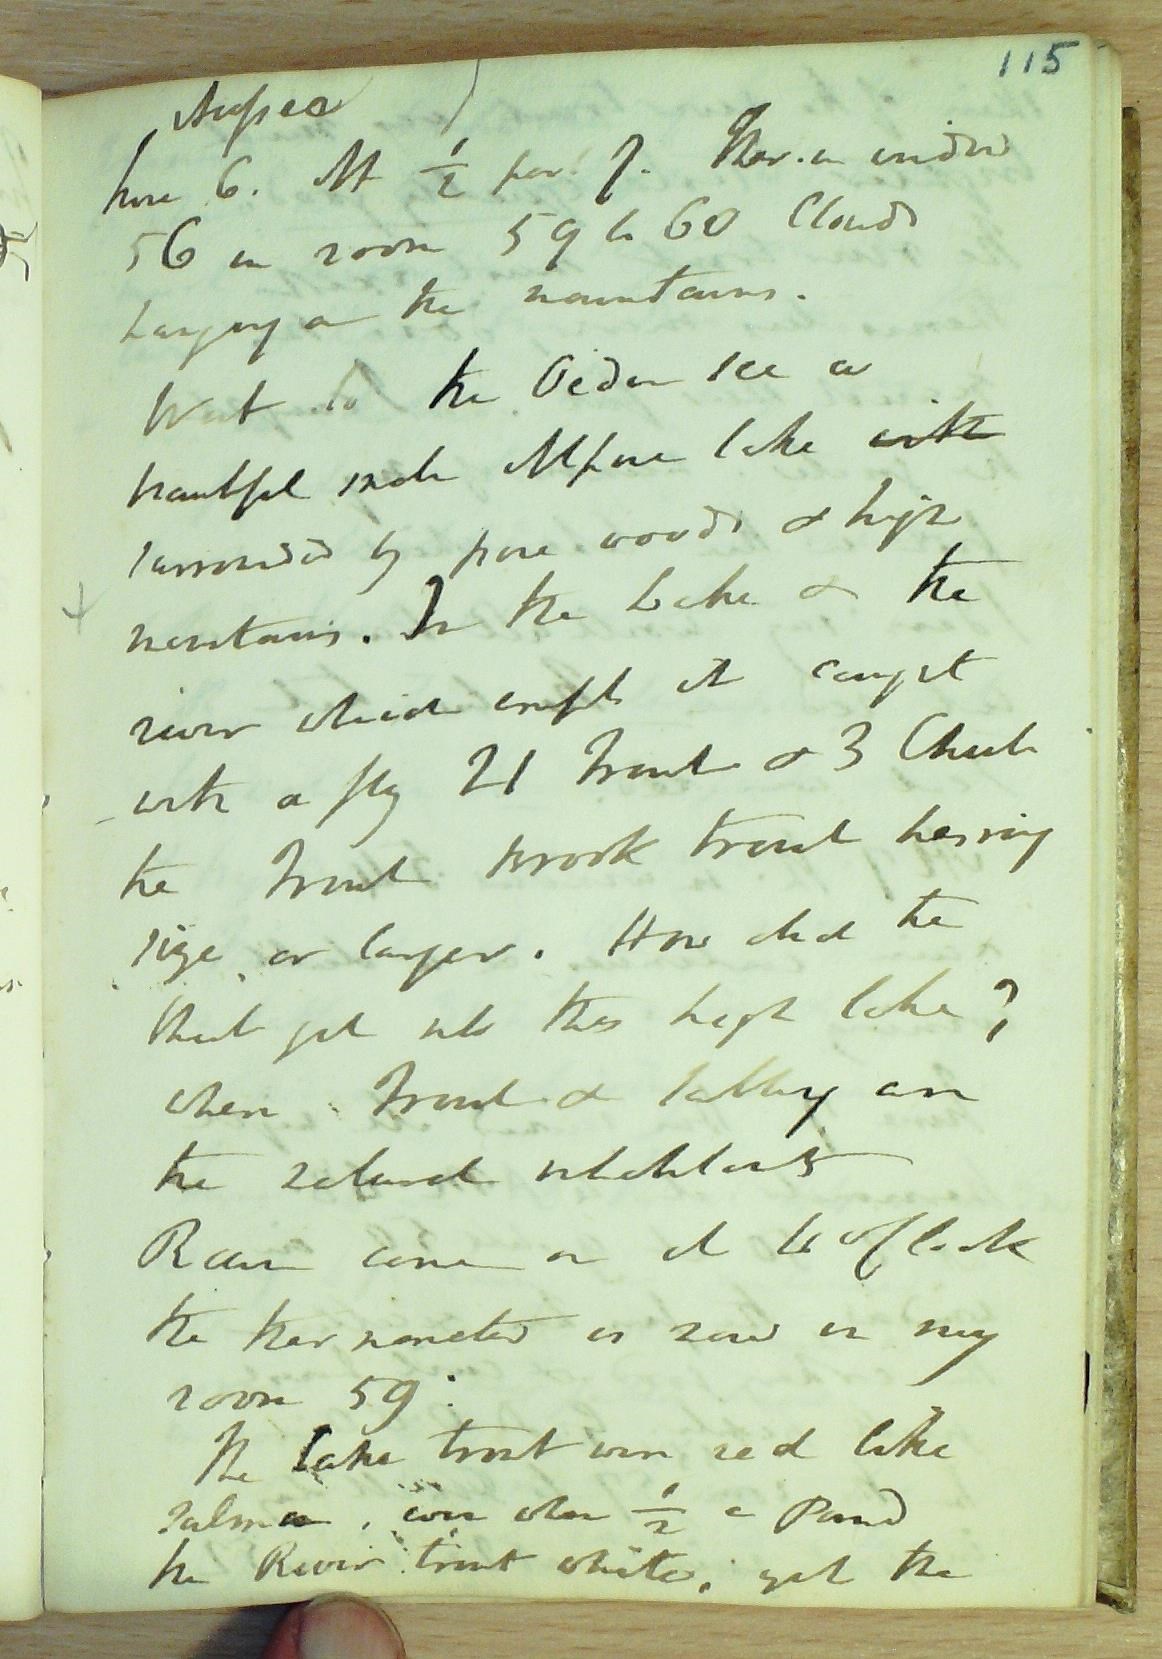 115
Aussee
here 6. At 1/2 past 7. Ther. in window
56 in room 59 to 60 Clouds
hanging on the mountains.
Went to the Oeden see a
beautiful small Alpine lake with
surrounded by pine woods & high
mountains. In the Lake & the
river which empts it caught
with a fly 21 Trout & 3 Chub
the Trout brook trout herring
size or larger. How did the
Chub get into this high lake?
when Trout & are
the natural inhabitants
Rain came on at o'clock
the thermometer is now in my
room 59.
The Lake trout were red like
salmon, even when 1/2 a Pound
the River trout white, yet the